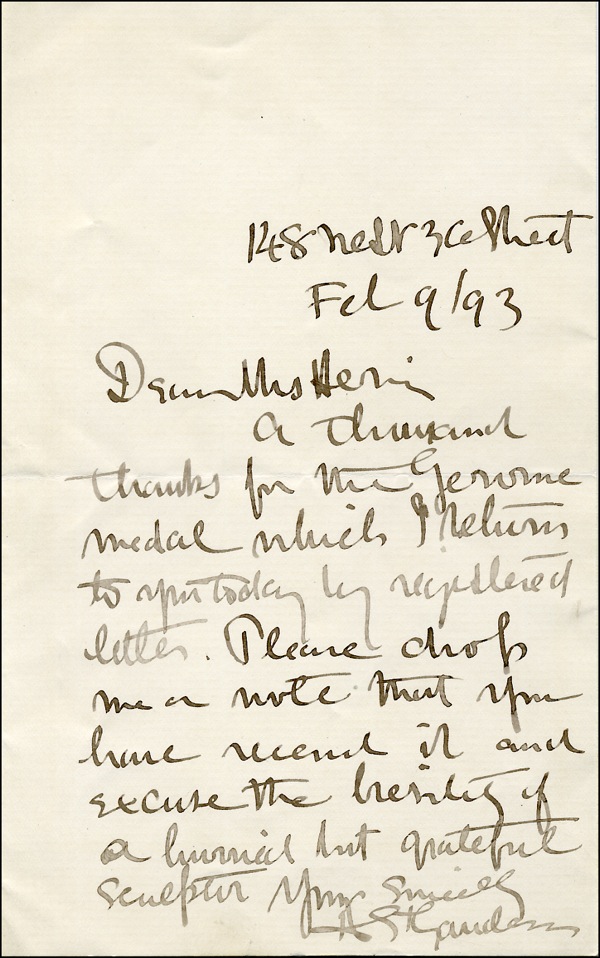 148 West 36 Street
Feb 9/93
Dear Mrs
A thousand
thanks for the Gerome
medal which I return
to you today by registered
letter. Please drop
me a note that you
have received it and
excuse the brevity of
a hurried but grateful
sculptor Yours sincerely
A St Gaudens